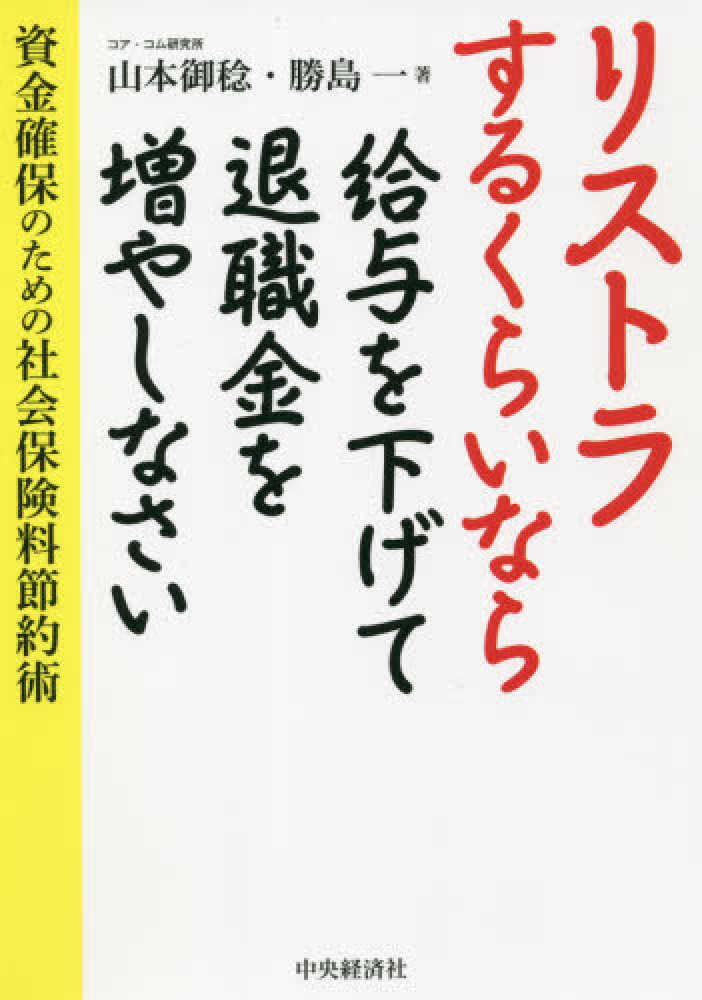 リストラ
するくらいなら
給与を下げて
退職金を
増やしなさい
コア・コム研究所
山本御稔・勝島 一 著
資金確保のための社会保険料節約術
中央経済社